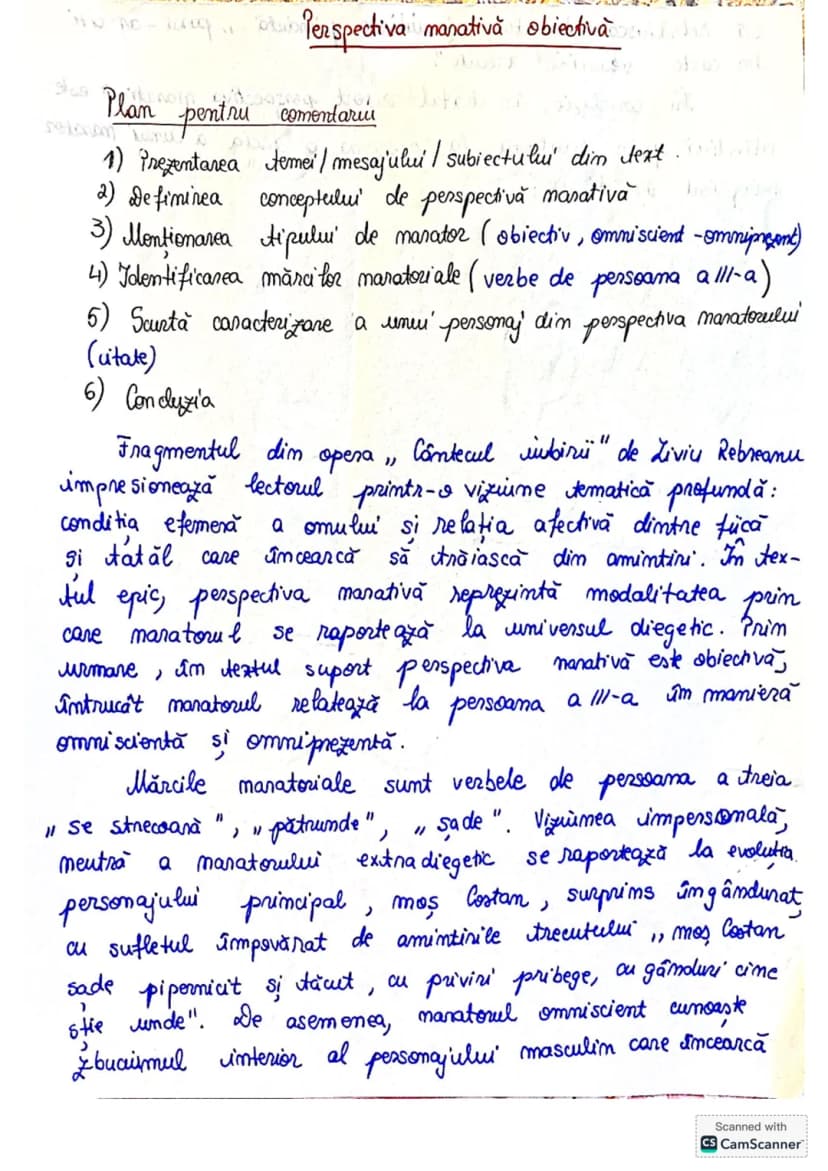 Perspectiva narativă obiectivă
Plan pentru comentariu
1) Prezentarea temei/mesajului/subiectului din text.
2) Definirea conceptului de perspectivă narativă
3) Menționarea tipului de narator (obiectiv, omniscient-omniprezent)
4) Identificarea mărcilor naratoriale (verbe de persoana a III-a)
5) Scurtă caracterizare a unui personaj din perspectiva naratorului
(citate)
6) Concluzia
Fragmentul din opera „Cântecul iubirii" de Liviu Rebreanu
impresionează lectorul printr-o viziune tematică profundă:
condiția efemeră a omului și relația afectivă dintre fiică
și tatăl care încearcă să trăiască din amintiri. În tex-
tul epic, perspectiva narativă reprezintă modalitatea prin
care naratorul se raportează la universul diegetic. Prin
urmare, în textul suport perspectiva narativă este obiectivă,
întrucât naratorul relatează la persoana a III-a în manieră
omniscientă și omniprezentă.
Mărcile naratoriale sunt verbele de persoana a treia
„se strecoară", „pătrunde", „șade". Viziunea impersonală,
neutră a naratorului extradiegetic se raportează la evoluția
personajului principal, moș Costan, surprins îngândurat,
cu sufletul împovărat de amintirile trecutului „moș Costan
șade pipernicit și tăcut, cu priviri pribege, cu gânduri cine
știe unde". De asemenea, naratorul omniscient cunoaște
zbuciumul interior al personajului masculin care încearcă
Scanned with
CS CamScanner